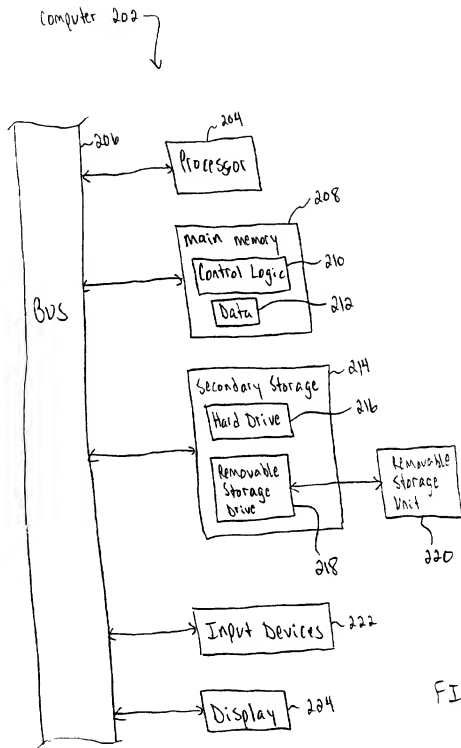 Computer 202
206
204
Processor
208
Main memory
Control Logic
210
Data
212
BUS
214
Secondary Storage
216
Hard Drive
Removable
Storage
Drive
218
Removable
Storage
Unit
220
Input Devices
222
Display
224
FI